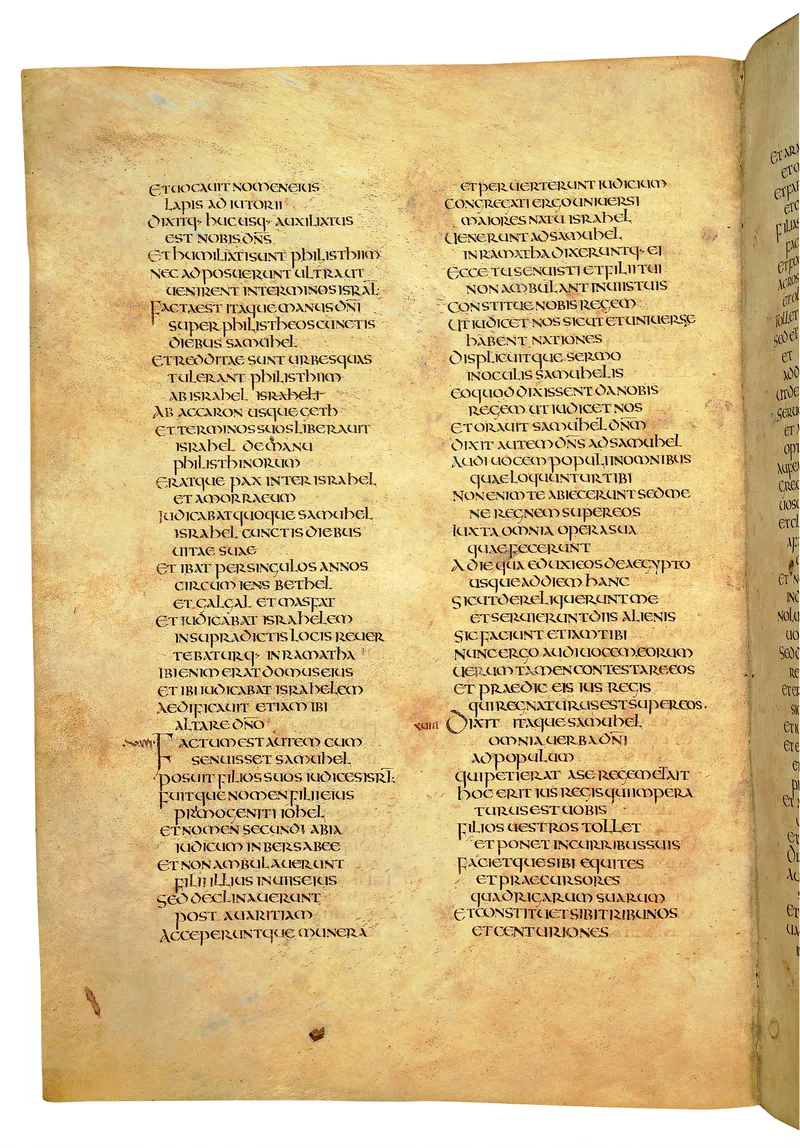 ETUOCAUIT NOMEN EIUS
LAPIS ADIUTORII
DIXITQ· HUCUSQ· AUXILIATUS
EST NOBIS DNS
ET HUMILIATI SUNT PHILISTHIIM
NEC ADPOSUERUNT ULTRA UT
UENIRENT IN TERMINOS ISRAL·
FACTA EST ITAQUE MANUS DNI
SUPER PHILISTHEOS CUNCTIS
DIEBUS SAMUHEL
ET REDDITAE SUNT URBES QUAS
TULERANT PHILISTHIIM
AB ISRAHEL ISRAHELI
AB ACCARON USQUE GETH
ET TERMINOS SUOS LIBERAUIT
ISRAHEL DE MANU
PHILISTHINORUM
ERATQUE PAX INTER ISRAHEL
ET AMORRAEUM
IUDICABAT QUOQUE SAMUHEL
ISRAHEL CUNCTIS DIEBUS
UITAE SUAE
ET IBAT PER SINGULOS ANNOS
CIRCUMIENS BETHEL
ET GALGAL ET MASFAT
ET IUDICABAT ISRAHELEM
IN SUPRADICTIS LOCIS REUER
TEBATURQ· IN RAMATHA
IBI ENIM ERAT DOMUS EIUS
ET IBI IUDICABAT ISRAHELEM
AEDIFICAUIT ETIAM IBI
ALTARE DNO
FACTUM EST AUTEM CUM
SENUISSET SAMUHEL
POSUIT FILIOS SUOS IUDICES ISRL·
FUITQUE NOMEN FILII EIUS
PRIMOGENITI IOHEL
ET NOMEN SECUNDI ABIA
IUDICUM IN BERSABEE
ET NON AMBULAUERUNT
FILII ILLIUS IN UIIS EIUS
SED DECLINAUERUNT
POST AUARITIAM
ACCEPERUNTQUE MUNERA
ET PERUERTERUNT IUDICIUM
CONGREGATI ERGO UNIUERSI
MAIORES NATU ISRAHEL
UENERUNT AD SAMUHEL
IN RAMATHA DIXERUNTQ· EI
ECCE TU SENUISTI ET FILII TUI
NON AMBULANT IN UIIS TUIS
CONSTITUE NOBIS REGEM
UT IUDICET NOS SICUT ET UNIUERSE
HABENT NATIONES
DISPLICUITQUE SERMO
IN OCULIS SAMUHELIS
EO QUOD DIXISSENT DA NOBIS
REGEM UT IUDICET NOS
ET ORAUIT SAMUHEL DNM
DIXIT AUTEM DNS AD SAMUHEL
AUDI UOCEM POPULI IN OMNIBUS
QUAE LOQUUNTUR TIBI
NON ENIM TE ABIECERUNT SED ME
NE REGNEM SUPER EOS
IUXTA OMNIA OPERA SUA
QUAE FECERUNT
A DIE QUA EDUXI EOS DE AEGYPTO
USQUE AD DIEM HANC
SICUT DERELIQUERUNT ME
ET SERUIERUNT DIIS ALIENIS
SIC FACIUNT ETIAM TIBI
NUNC ERGO AUDI UOCEM EORUM
UERUM TAMEN CONTESTARE EOS
ET PRAEDIC EIS IUS REGIS
QUI REGNATURUS EST SUPER EOS·
XVIII DIXIT ITAQUE SAMUHEL
OMNIA UERBA DNI
AD POPULUM
QUI PETIERAT A SE REGEM ET AIT
HOC ERIT IUS REGIS QUI IMPERA
TURUS EST UOBIS
FILIOS UESTROS TOLLET
ET PONET IN CURRIBUS SUIS
FACIETQUE SIBI EQUITES
ET PRAECURSORES
QUADRIGARUM SUARUM
ET CONSTITUET SIBI TRIBUNOS
ET CENTURIONES